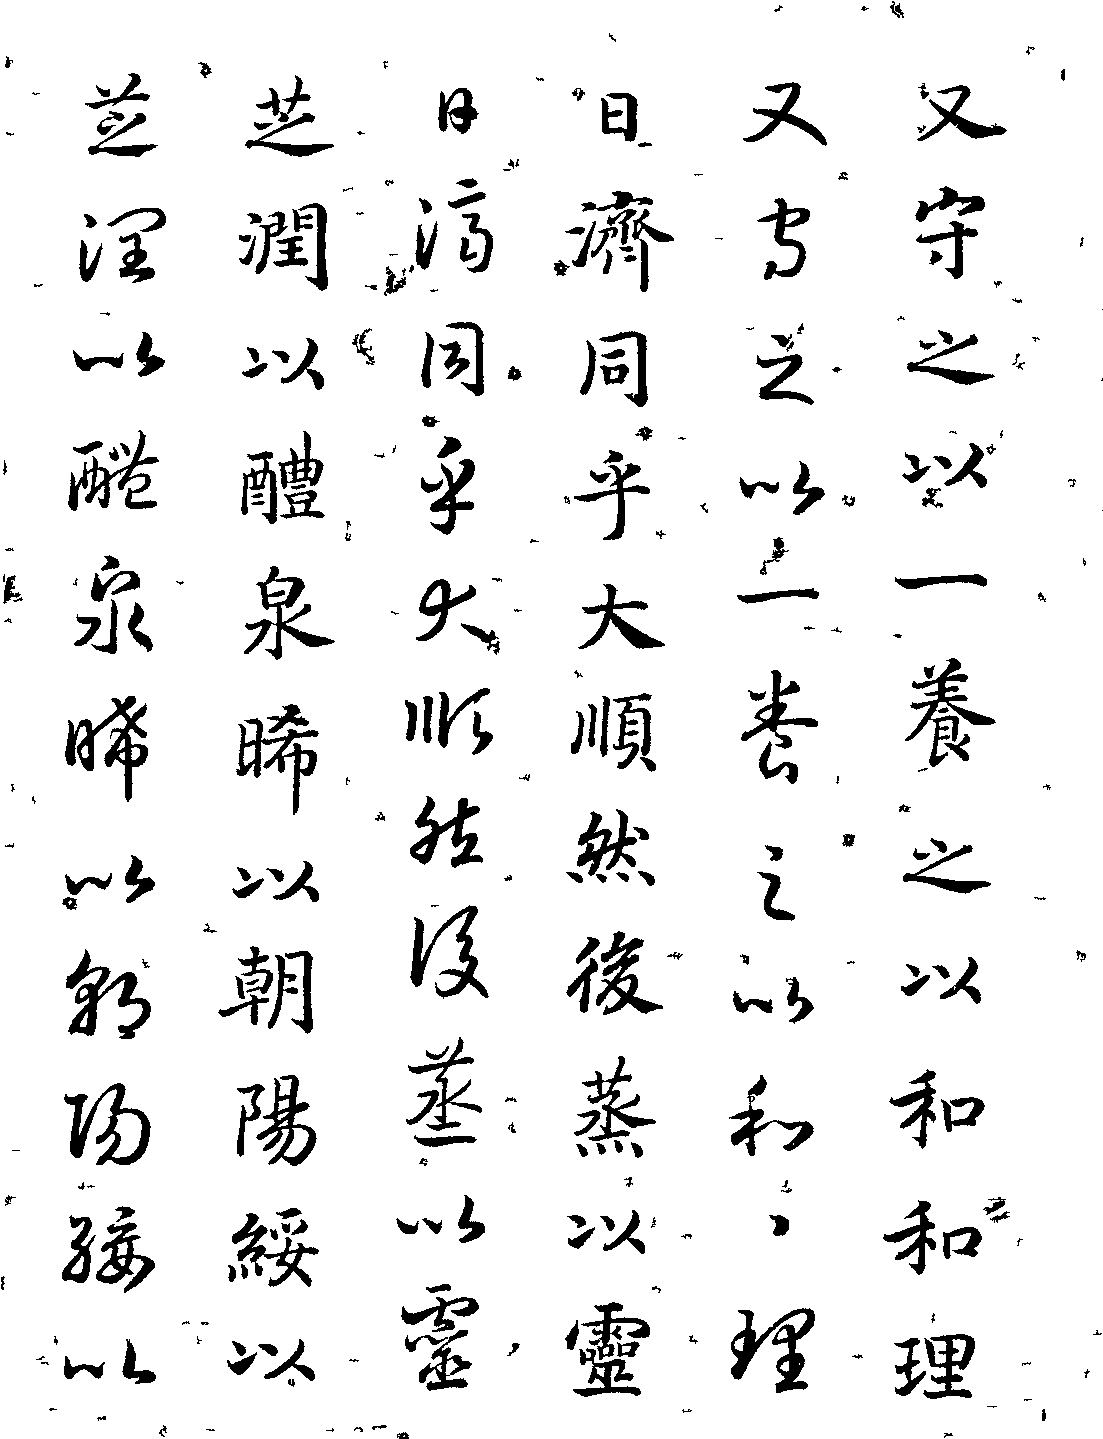 又守之以一養之以和和理
又守之以一養之以和〻理
日濟同乎大順然後蒸以靈
日濟同乎大順然後蒸以靈
芝潤以醴泉晞以朝陽綏以
芝潤以醴泉晞以朝陽綏以